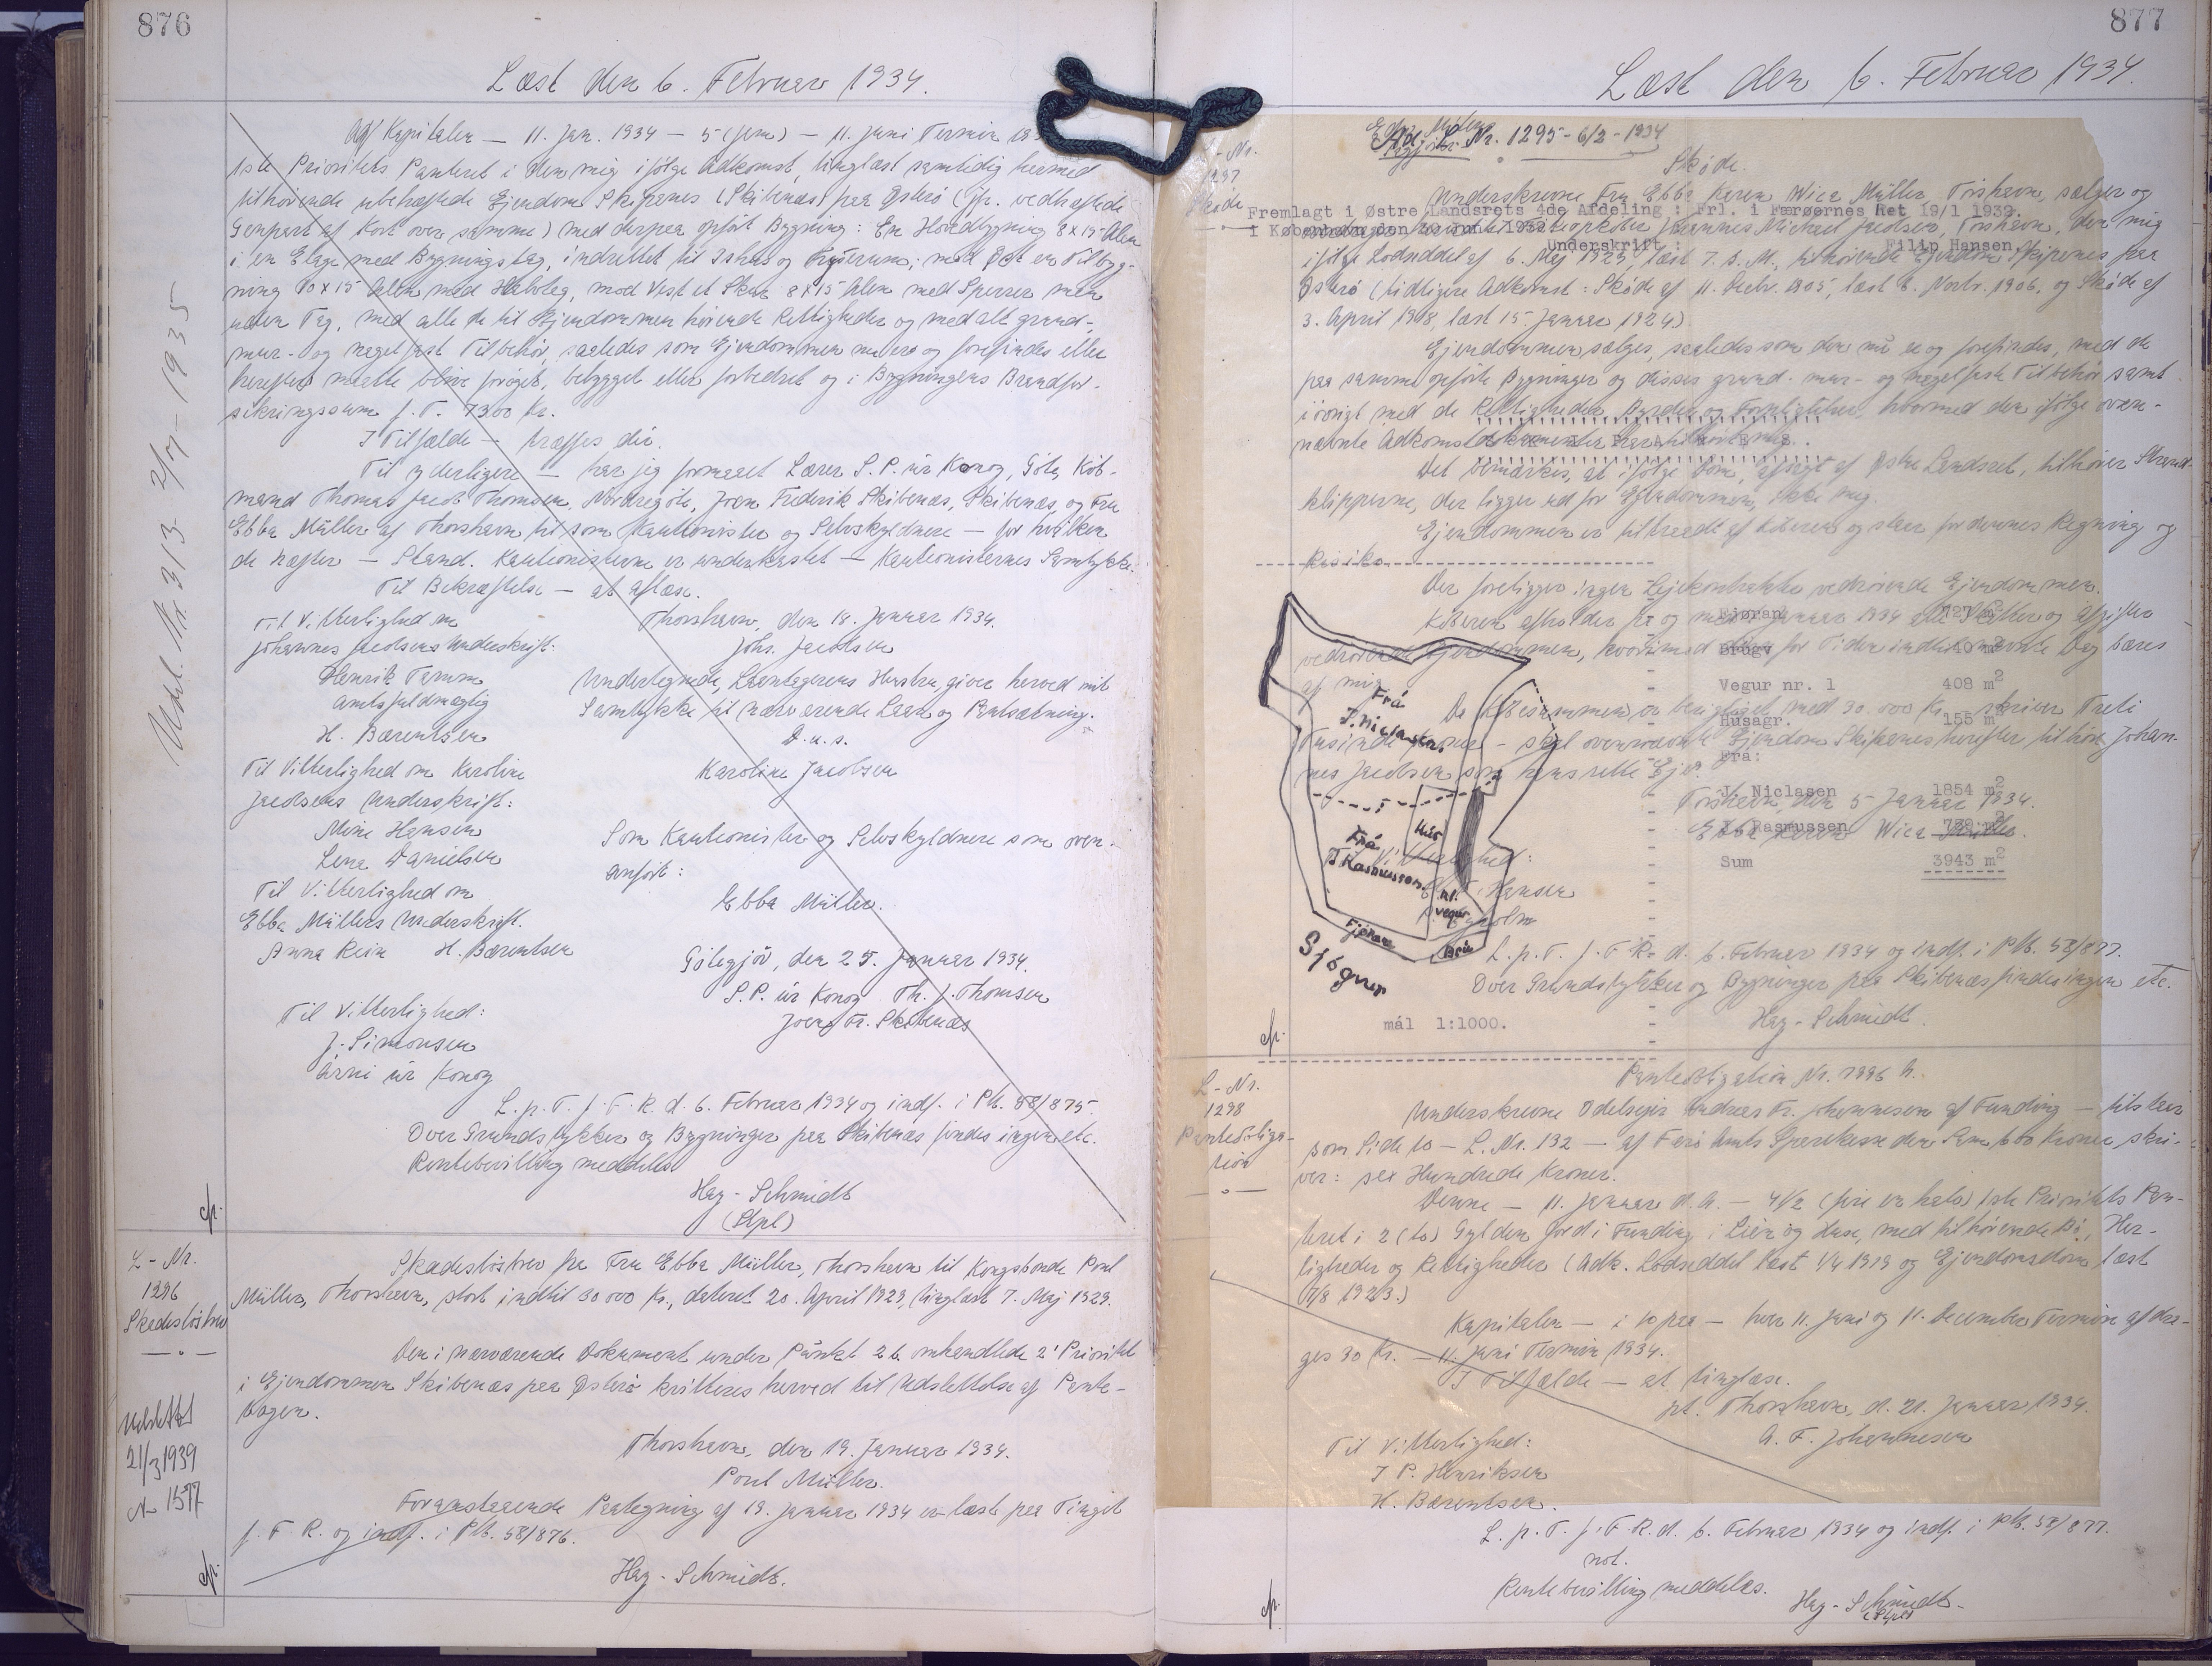 876
Læst den 6. Februar 1934.
Af Kapitalen — 11. Jan. 1934 — 5 (fem) — 11. Juni Termin
1ste Prioritets Panteret i den mig ifølge Adkomst, tinglæst samtidig hermed
tilhørende ubehæftede Ejendom Skipanes (Skibenæs) paa Østerö (jfr. vedhæftede
Genpart af Kort over samme) med derpaa opført Bygning: En Hovedbygning 8 x 15 Alen
i en Etage med Bygningstag, indrettet til Ishus og Fryserum; mod Øst en Tilbyg-
ning 10 x 15 Alen med Halvtag, mod Vest et Skur 8 x 15 Alen med Sperrer men
uden Tag, med alle de til Ejendommen hørende Rettigheder og med alt grund-,
mur- og nagelfast Tilbehør, saaledes som Ejendommen nu er og forefindes eller
herefter maatte blive forøget, bebygget eller forbedret og i Bygningens Brandfor-
sikringssum p. T. 7300 Kr.
I Tilfælde — træffes dér.
Til yderligere — har jeg formaaet Lærer S. P. úr Konoy, Göta, Köb-
mand Thomas Jacob Thomsen, Nordregöte, Joen Frederik Skibenæs, Skibenæs, og Fru
Ebba Müller af Thorshavn til som Kautionister og Selvskyldnere — for hvilken
de hæfter — Stand. Kautionisterne er underkastet — Kautionisternes Samtykke.
Til Bekræftelse — at aflæse.
Thorshavn, den 18. Januar 1934.
Til Vitterlighed om
Johannes Jacobsens Underskrift:
Johs. Jacobsen
Henrik Tamm
Amtsfuldmægtig
H. Bærentsen
Undertegnede, Laantagerens Hustru, giver herved mit
Samtykke til nærværende Laan og Pantsætning.
D. u. s.
Til Vitterlighed om Karoline
Jacobsens Underskrift:
Karoline Jacobsen
Mine Hansen
Lena Danielsen
Som Kautionister og Selvskyldnere som oven-
anført:
Til Vitterlighed om
Ebba Müllers Underskrift.
Ebba Müller.
Anna Rein H. Bærentsen
Götegjöv, den 25. Januar 1934.
S. P. úr Konoy Th. J. Thomsen
Joen Fr. Skibenæs
Til Vitterlighed:
J. Simonsen
Árni úr Konoy
L. p. T. f. F. R. d. 6. Februar 1934 og indf. i Ptb. 58/875.
Over Grundstykker og Bygninger paa Skibenæs findes ingen etc.
Rentebevilling meddeles
Hay-Schmidt
(Stpl)
Udsl. Nr. 313 2/7-1935
L-Nr.
1296
Skadesløsbrev
Skadesløsbrev fra Fru Ebba Müller, Thorshavn til Kongsbonde Poul
Müller, Thorshavn, stort indtil 30 000 Kr., dateret 20. April 1929, tinglæst 7. Maj 1929.
Den i nærværende Dokument under Punkt 2 b. omhandlede 2' Prioritet
i Ejendommen Skibenæs paa Østerö kvitteres herved til Udslettelse af Pante-
bogen.
Udslettet
21/3 1939
N 1577
Thorshavn, den 19. Januar 1934.
Poul Müller.
Foranstaaende Paategning af 19. Januar 1934 er læst paa Tinget
f. F. R. og indf. i Ptb. 58/876.
Hay-Schmidt.
877
Læst den 6. Februar 1934.
Ad. L. Nr. 1295-6/2-1934
Skøde.
Underskrevne Fru Ebba Karen Wica Müller, Tórshavn, sælger og
Fremlagt i Østre Landsrets 4de Afdeling : Frl. i Færøernes Ret 19/1 1939.
i København, den 30 Juni 1932.
Underskrift : Filip Hansen.
Johannes Michael Jacobsen, Tórshavn, den mig
ifølge Lodseddel af 6. Maj 1929, læst 7. s. M., tilhørende Ejendom Skipanes paa
Østerö (tidligere Adkomst: Skøde af 11. Decbr. 1905, læst 6. Novbr. 1906, og Skøde af
3. April 1918, læst 15. Januar 1924)
Ejendommen sælges, saaledes som den nu er og forefindes, med de
paa samme opførte Bygninger og disses grund- mur- og nagelfaste Tilbehør samt
iøvrigt med de Rettigheder, Byrder og Forpligtelser, hvormed den ifølge oven-
nævnte Adkomstdokumenter har tilhørt mig.
Det bemærkes, at ifølge Dom, afsagt af Østre Landsret, tilhører Strand-
klipperne, der ligger ud for Ejendommen, ikke mig.
Ejendommen er tiltraadt af Køberen og staar for dennes Regning og
Risiko.
Der foreligger ingen Lejekontrakter vedrørende Ejendommen.
Køberen afholder fra og med Januar 1934 alle Skatter og Afgifter
vedrørende Ejendommen, hvorimod for Tiden indtil nævnte Dag bæres
af mig.
Da Købesummen er berigtiget med 30.000 Kr. — skriver Treti
Tusinde Kroner — skal ovennævnte Ejendom Skipanes herefter tilhøre Johan-
nes Jacobsen som hans rette Ejer.
Tórshavn, den 5 Januar 1934.
Ebba Karen Wica Müller.
Fjøran 727 m2
Brúgv 40 m2
Vegur nr. 1 408 m2
Húsagr. 155 m2
Frá:
J. Niclasen 1854 m2
J. Rasmussen
Sum 3943 m2
Frá
J. Niclasen
Hús
Frá
J Rasmussen
nr.
vegur
Fjøran
Brú
Sjógvur
mál 1:1000.
L. p. T. f. F. R. d. 6. Februar 1934 og indf. i Ptb. 58/877.
Over Grundstykker og Bygninger paa Skibenæs findes ingen etc.
Hay-Schmidt.
L-Nr.
1298
Panteobliga-
tion
Panteobligation Nr. 7996 h.
Underskrevne Odelsejer Andreas Fr. Johannesen af Funding — tilstaar
som Side 10 — L. Nr. 132 — af Færö Amts Sparekasse den Sum 600 Kroner, skri-
ver: sex Hundrede Kroner.
Denne — 11. Januar d. A. — 4 1/2 (fire en halv) 1ste Prioritets Pan-
teret i 2 (to) Gylden Jord i Funding, i Lien og Huse, med tilhørende Bø, Her-
ligheder og Rettigheder (Adk. Lodseddel læst 1/4 1919 og Ejendomsdom læst
7/8 1923.)
Kapitalen — i 10 paa — hver 11. Juni og 11. December Termin afdra-
ges 30 Kr. — 11. Juni Termin 1934.
I Tilfælde — at tinglæse.
pt. Thorshavn, d. 21. Januar 1934.
A. F. Johannesen
Til Vitterlighed:
J P. Henriksen
H. Bærentsen.
L. p. T. f. F. R. d. 6. Februar 1934 og indf. i Ptb. 58/877.
not.
Rentebevilling meddeles.
Hay-Schmidt